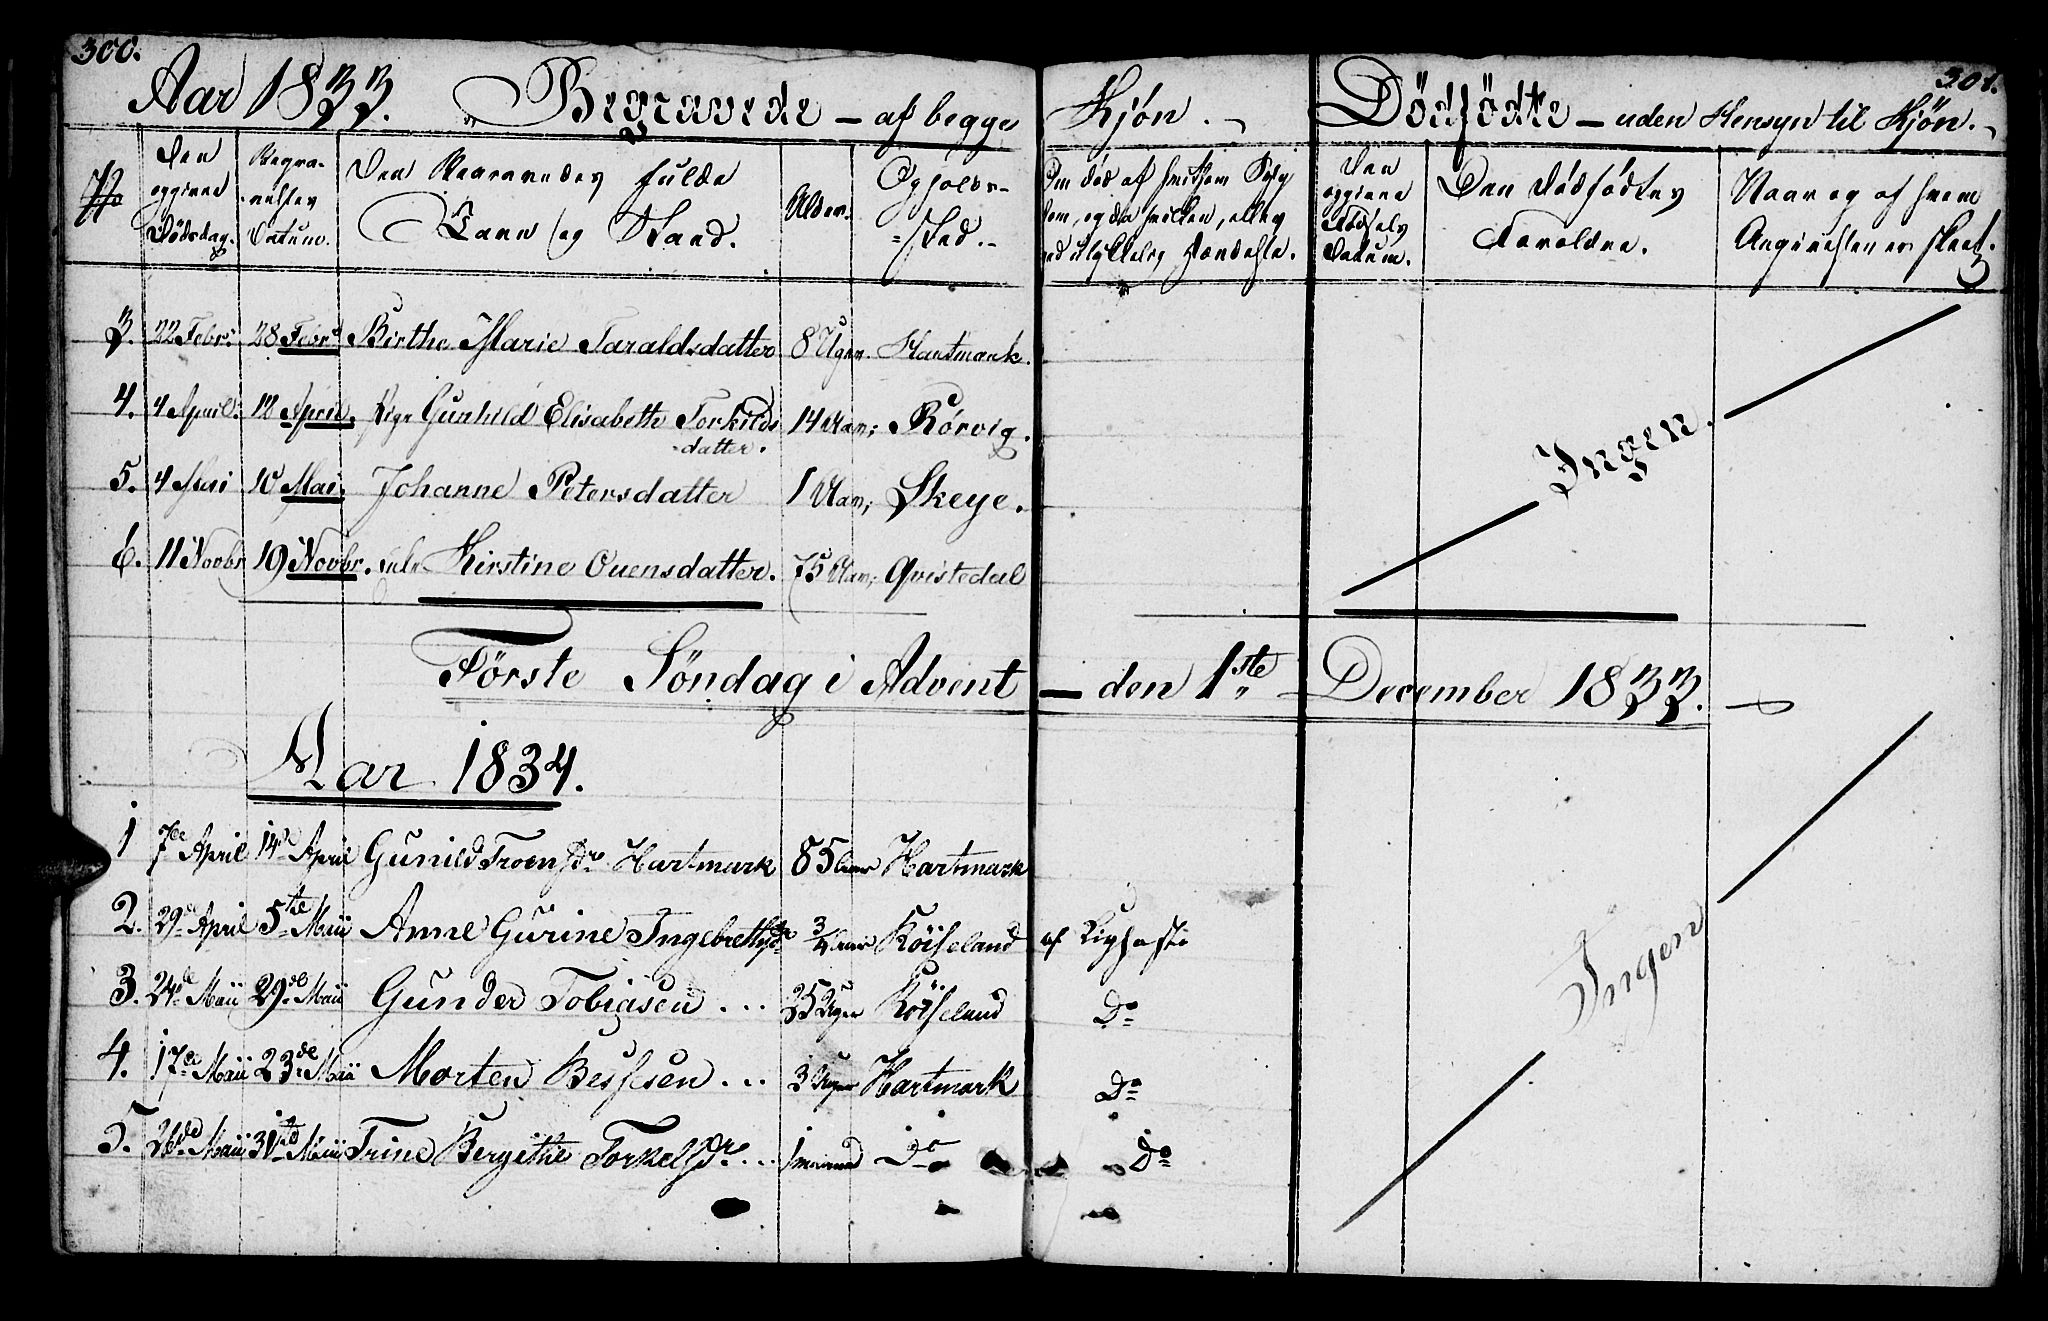 300.
301.
Aar 1833. Begravede – af begge Kjøn. Dödfödte – uden Hensyn til Kjön.
No
Den opgivne Dödsdag.
Begravelses Datum.
Den Begravedes fulde Navn og Stand.
Alder.
Opholds-Sted.
Om død af smitsom Syg-
dom, og da hvilken, eller
ved ulykkelig Hændelse.
Den opgivne Födsels Datum.
Den Dødfødtes Forældre.
Naar og af hvem Angivelsen er skeet.
3. 22 Febr: 28 Febr: Birthe Marie Taraldsdatter 8 Uger. Hartmark.
4. 4 April: 12 April. Pige Gunhild Elisabeth Torkilds- 14 Aar; Rörvig.
datter.
5. 4 Mai 10 Mai. Johanne Petersdatter 1 Aar; Skeye.
6. 11 Novbr 19 Novbr. Kirstine Ouensdatter. 75 Aar; Qvistedal
Ingen.
Förste Söndag i Advent – den 1ste December 1833.
Aar 1834.
1 7de April 14de April Gunild Troensdr Hartmark 85 Aar Hartmark
2. 29de April 5te Maii Anne Gurine Ingebretsdr 3/4 Aar Köiseland af Kighoste
3. 24de Maii 29de Maii Gunder Tobiasen ... 35 Uger Köiseland Do
4. 17de Maii 23de Maii Morten Bessesen ... 3 Uger Hartmark Do
5. 26de Maii 31te Maii Trine Bergithe Torkelsdr ... 1 maaned Do Do
Ingen